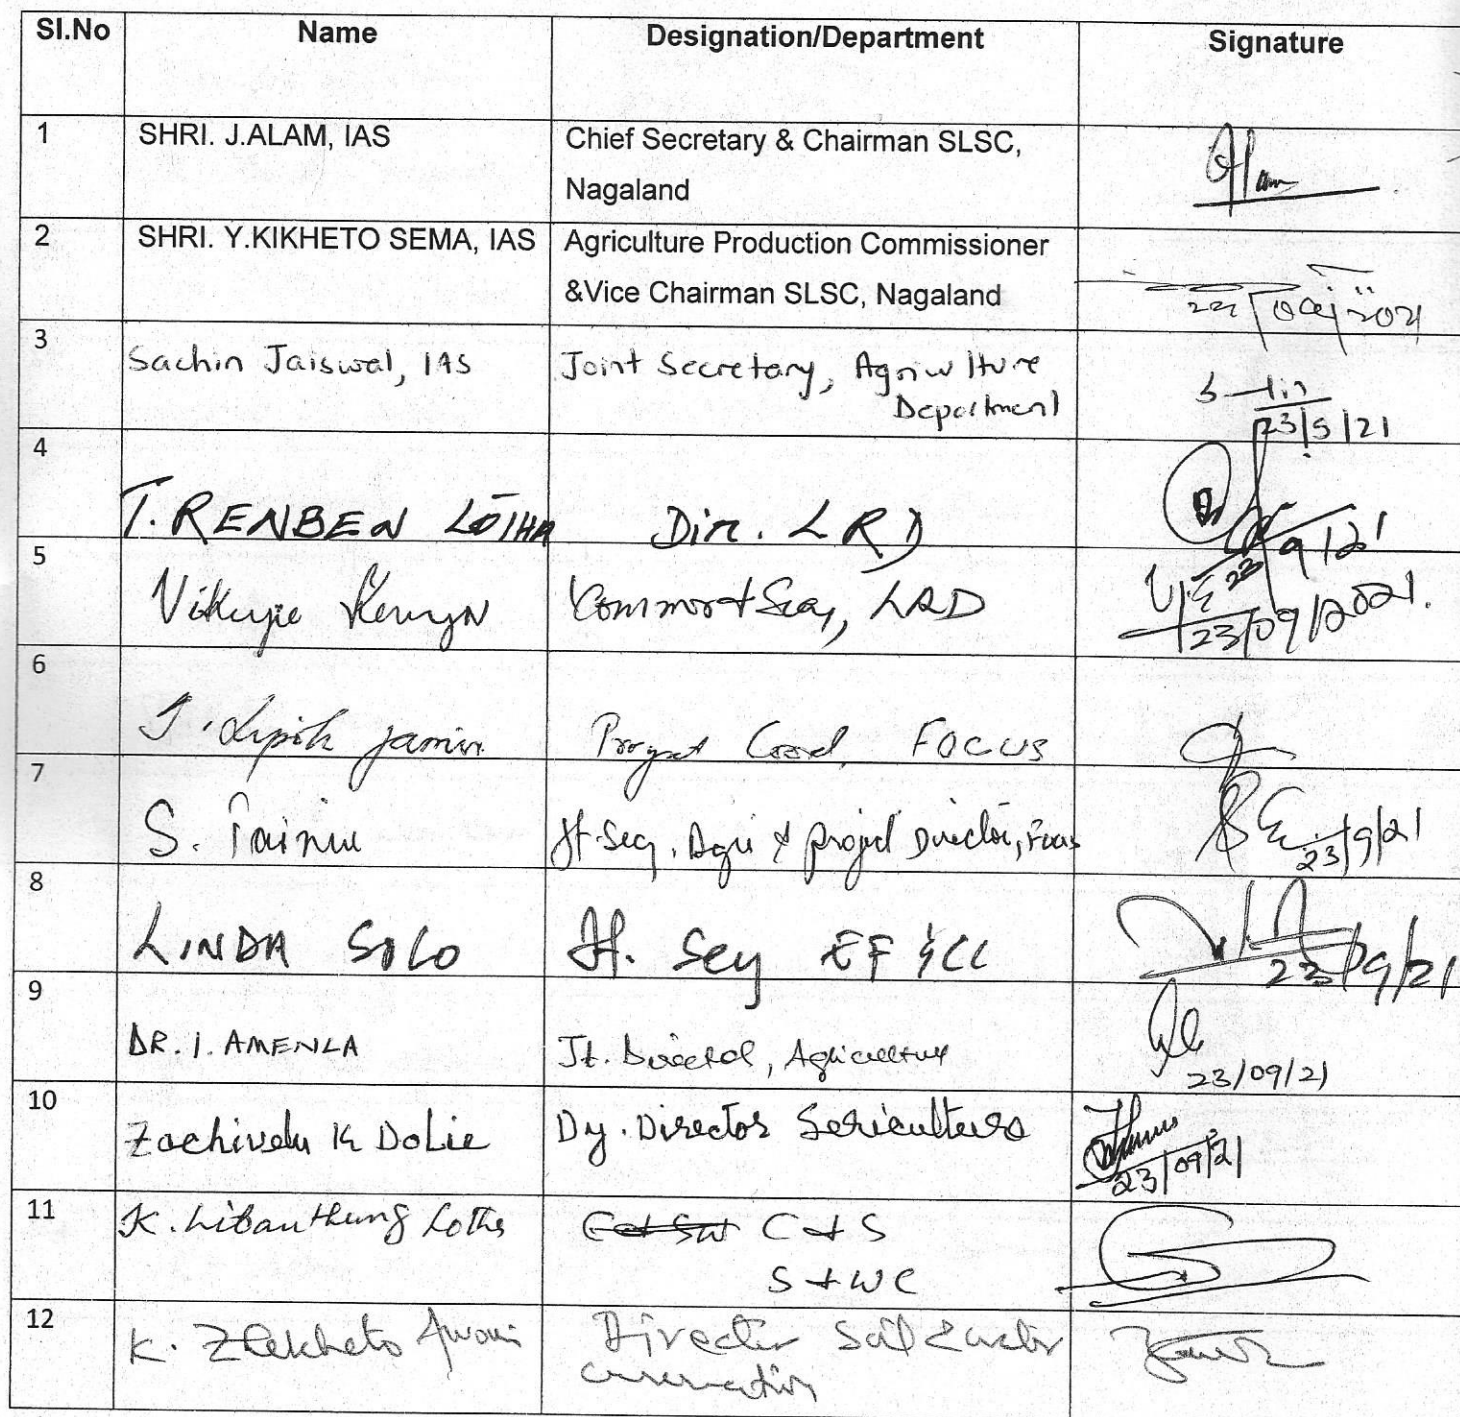 Sl.No Name Designation/Department Signature
1 SHRI. J.ALAM, IAS Chief Secretary & Chairman SLSC,
Nagaland
2 SHRI. Y.KIKHETO SEMA, IAS Agriculture Production Commissioner
&Vice Chairman SLSC, Nagaland
3 Sachin Jaiswal, IAS Joint Secretary, Agriculture
Department
23/5/21
4
T. RENBEN LOTHA Dir. LRD
9/21
5
Vikuyie LRD
23/09/2021.
6
Project Coord, FOCUS
7
S. Jt. Secy, Agri & Project Director, Focus
23/9/21
8
LINDA SOLO Jt. Secy EF &CC
23/09/21
9
DR. I. AMENLA Jt. Director, Agriculture
23/09/21
10
Zachivelu K Dolie Dy. Director Sericulture
23/09/21
11 K. Libanthung Lotha C & S
S & WC
12
K. Zhekheto Awomi Director Soil & water
conservation